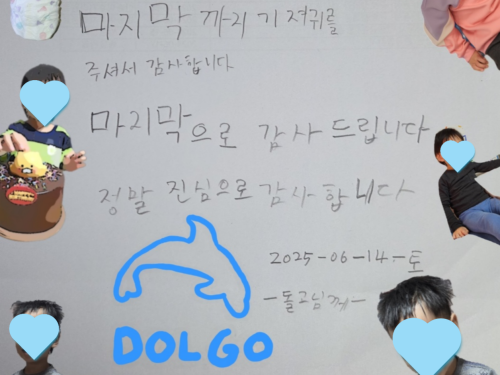 마지막까지 기저귀를
주셔서 감사합니다
마지막으로 감사드립니다
정말 진심으로 감사합니다
2025-06-14-토
-돌고님께-
DOLGO